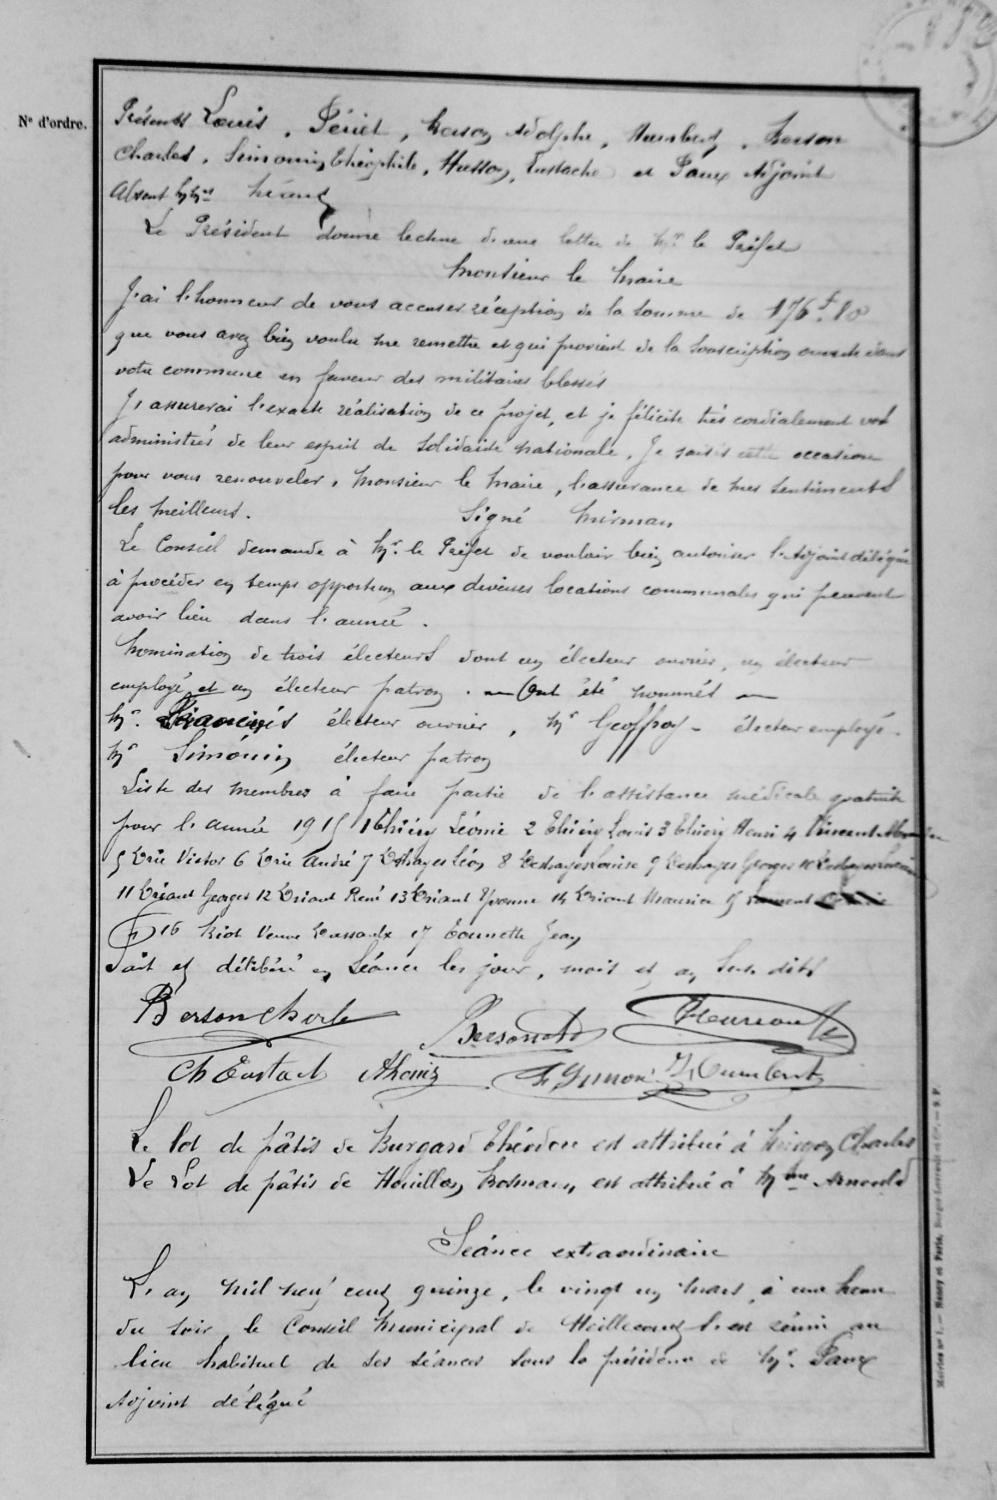 N° d'ordre.
Présents Louis, Périet, Berson Adolphe, Humbert, Berson
Charles, Simonin Théophile, Husson, Eustache et Paux Adjoint
Absent Mr
Le Président donne lecture d'une lettre de Mr le Préfet
Monsieur le Maire
J'ai l'honneur de vous accuser réception de la somme de 176f.80
que vous avez bien voulu me remettre et qui provient de la souscription ouverte dans
votre commune en faveur des militaires blessés
J'assurerai l'exacte réalisation de ce projet, et je félicite très cordialement vos
administrés de leur esprit de solidarité nationale. Je saisis cette occasion
pour vous renouveler, Monsieur le Maire, l'assurance de mes sentiments
les meilleurs. Signé Mirman
Le Conseil demande à Mr. le Préfet de vouloir bien autoriser l'Adjoint délégué
à procéder en temps opportun aux diverses locations communales qui peuvent
avoir lieu dans l'année.
Nomination de trois électeurs dont un électeur ouvrier, un électeur
employé et un électeur patron. — Ont été nommés —
Mr. électeur ouvrier, Mr Geoffroy - électeur employé.
Mr Simonin électeur patron
Liste des membres à faire partie de l'assistance médicale gratuite
pour l'année 1915 1 Thiéry Léonie 2 Thiéry Louis 3 Thiéry Henri 4 Vincent
5 Victor 6 André 7 Deshayes Léon 8 Deshayes Louise 9 Deshayes Georges 10 Deshayes
11 Criant Georges 12 Criant René 13 Criant Yvonne 14 Criant Maurice 15 Laurent
16 Veuve 17 Tounette Jean
Fait et délibéré en Séance les jour, mois et an sus-dits
Berson Charle Berson Ad
Ch Eustach Simoni Humbert
Le lot de pâtis de Burgard Théodore est attribué à Charles
Le Lot de pâtis de Houillon est attribué à Mme Arnould
Séance extraordinaire
L'an mil neuf cent quinze, le vingt un mars, à une heure
du soir, le Conseil Municipal de Heillecourt s'est réuni au
lieu habituel de ses séances sous la présidence de Mr. Paux
Adjoint délégué